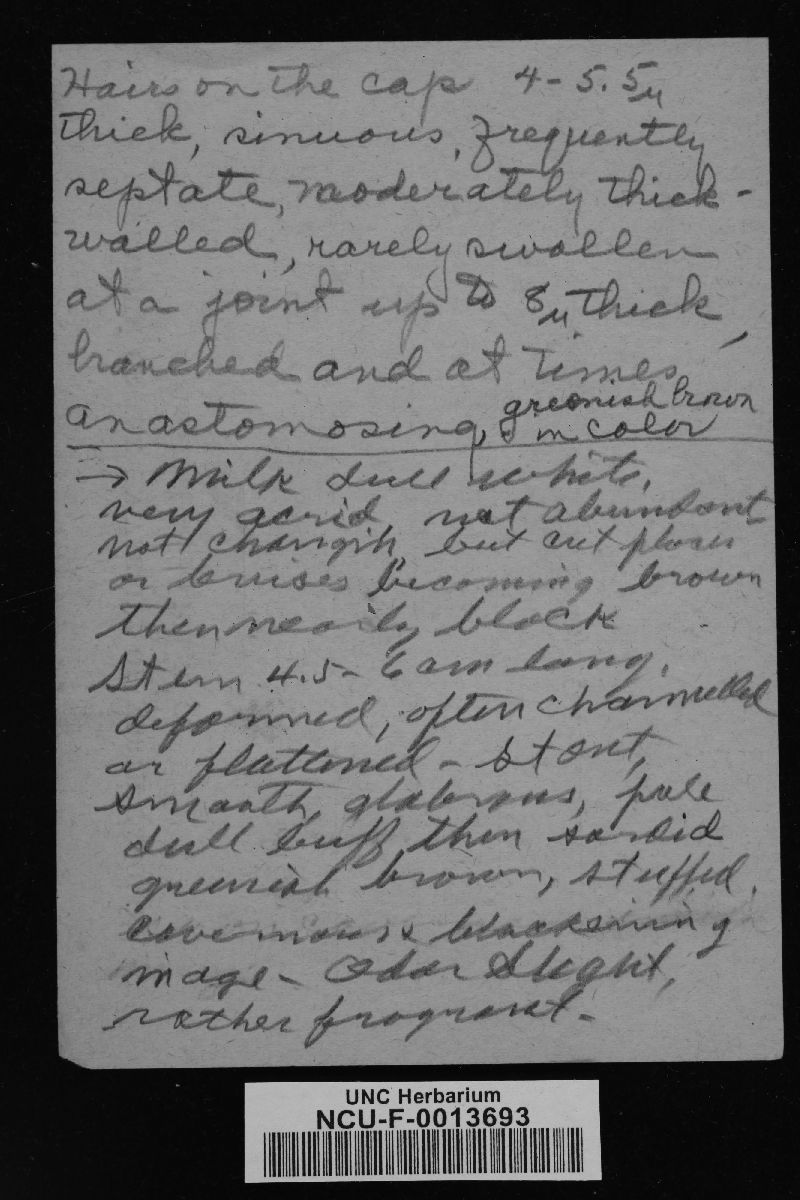 Hairs on the cap 4-5.5µ
thick, sinuous, frequently
septate, moderately thick-
walled, rarely swollen
at a joint up to 8µ thick,
branched and at times
anastomosing, greenish brown
in color
→ Milk dull white,
very acrid, not abundant
not changing, but cut places
or bruises becoming brown
then nearly black
Stem 4.5-6 cm long,
deformed, often channelled
or flattened - stout,
smooth, glabrous, pale
dull buff then sordid
greenish brown, stuffed,
cavernous & blackening
in age - Odor slight,
rather fragrant -
UNC Herbarium
NCU-F-0013693